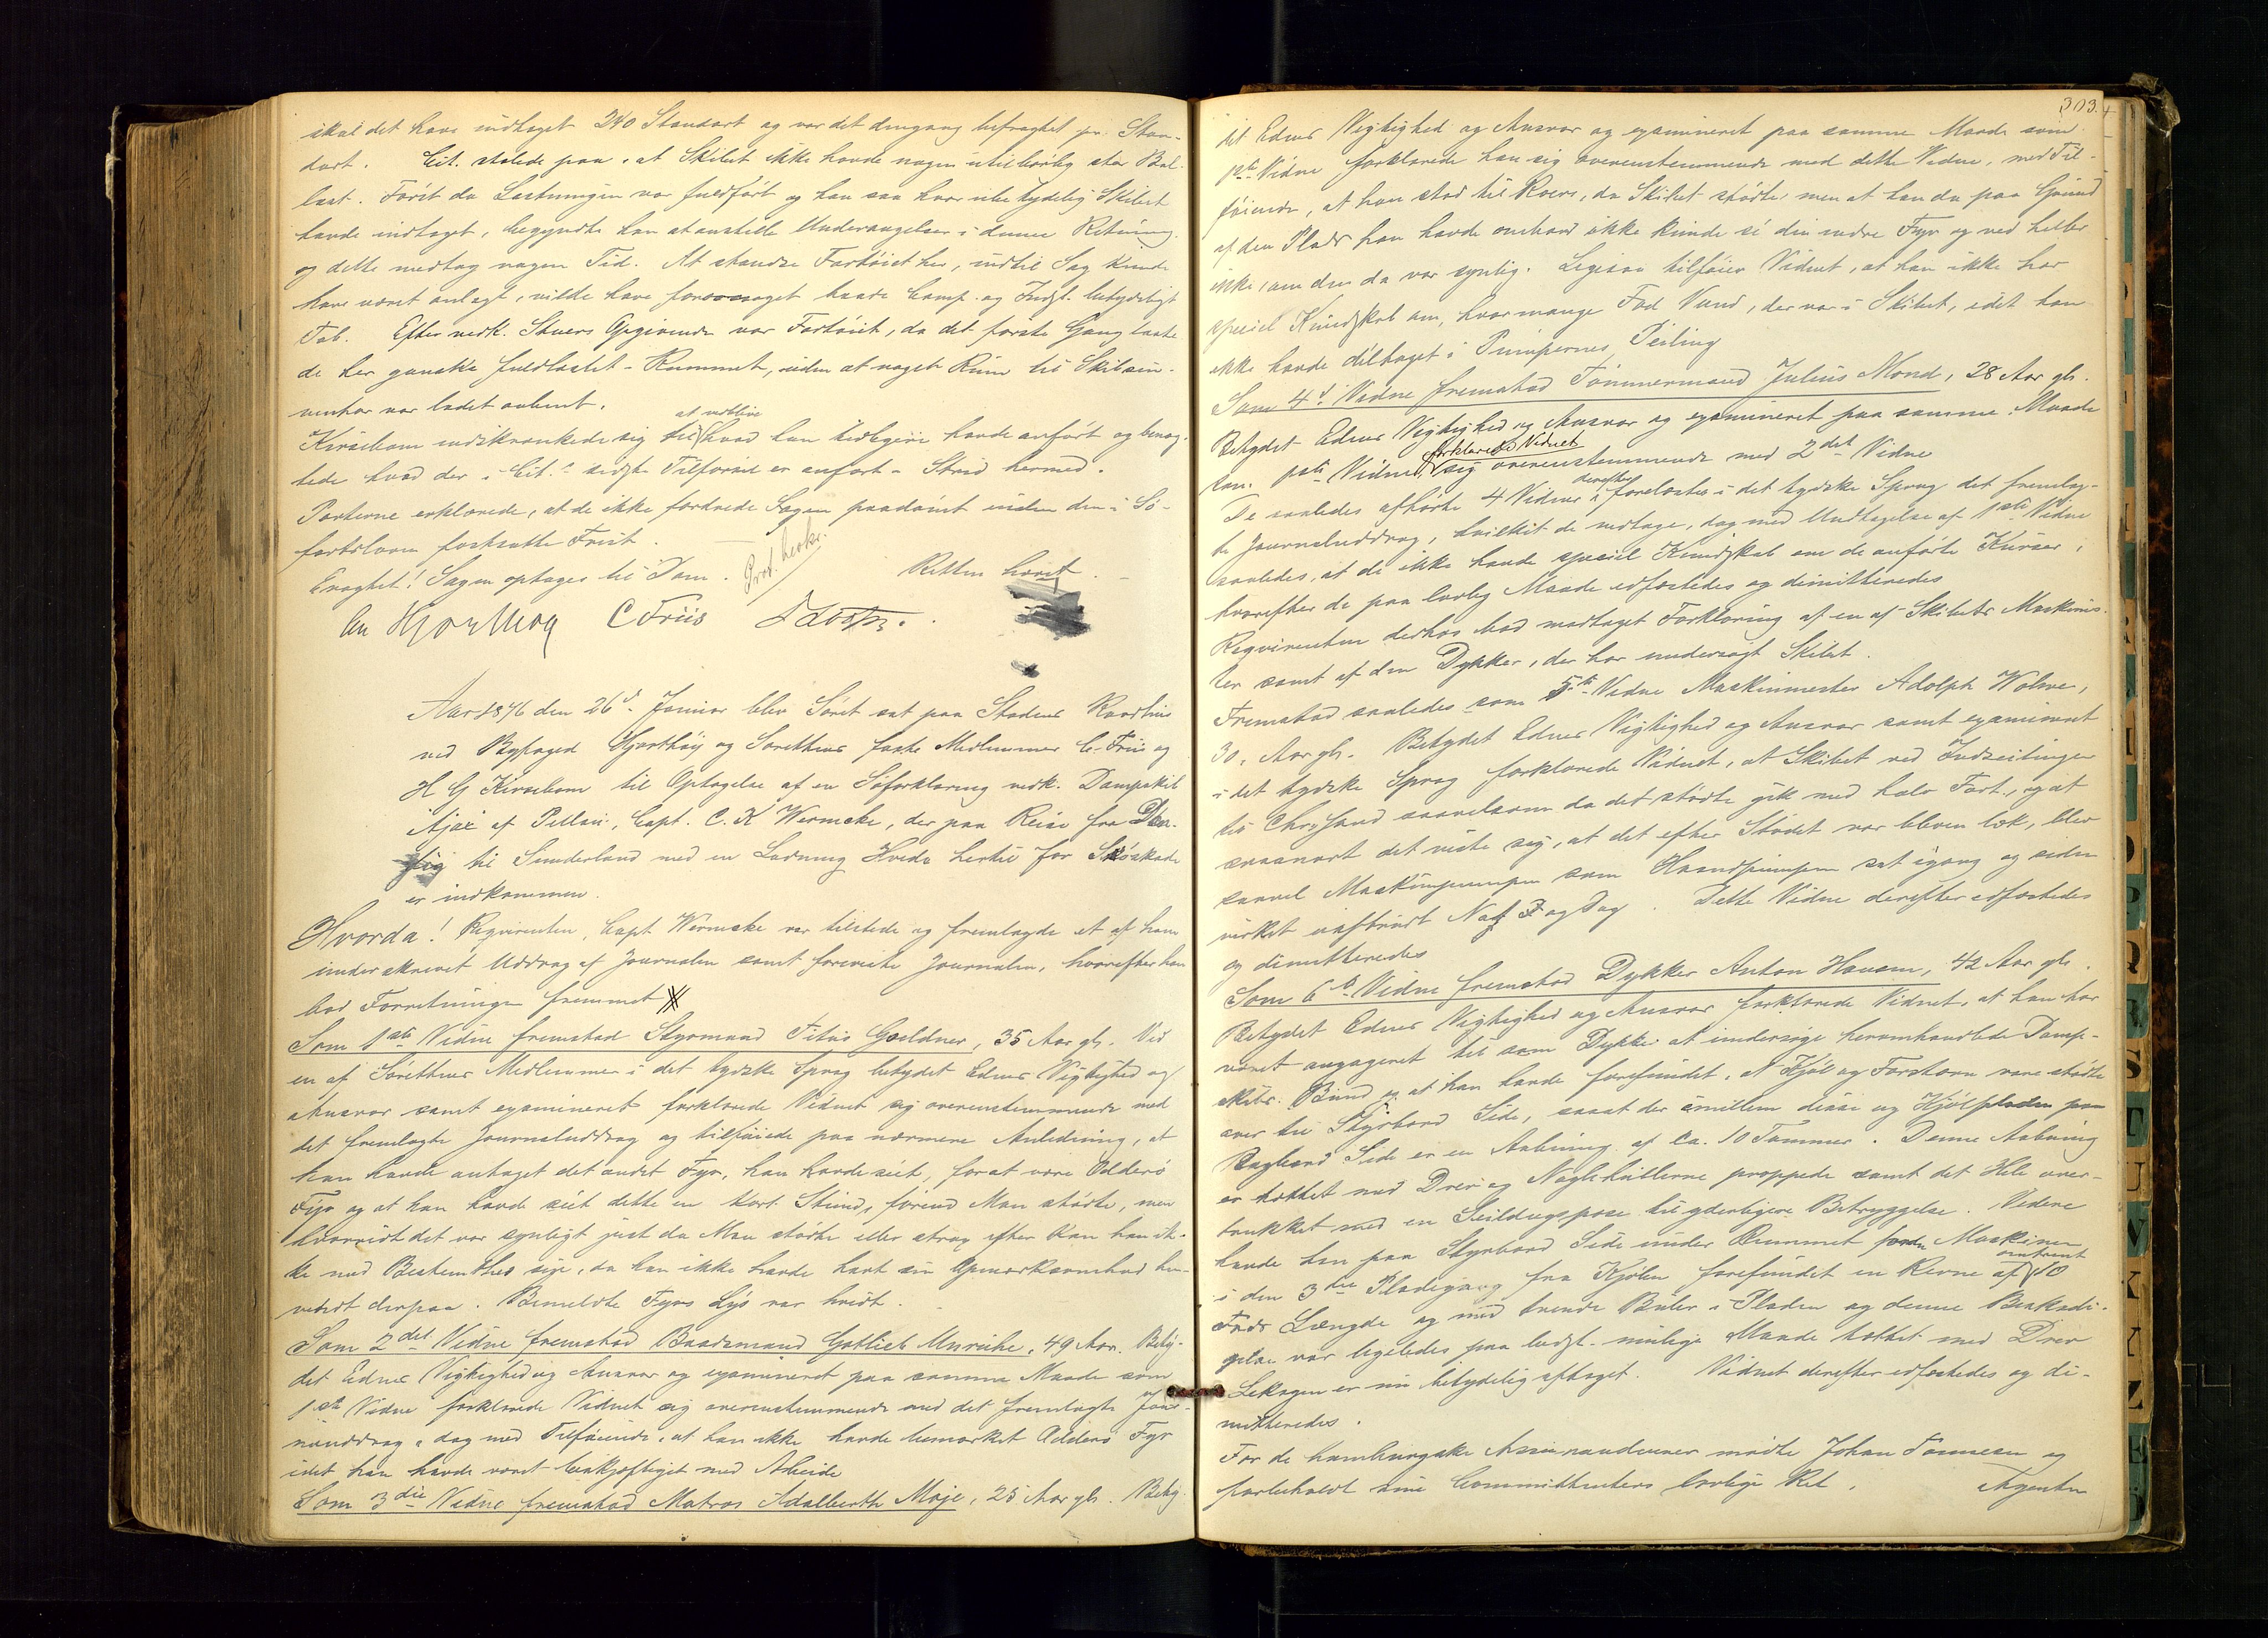 skal det have indtaget 240 Standart og var det dengang befragtet pr. Stan-
dart. Cit. stolede paa, at Skibet ikke havde nogen utilbørlig stor Bal-
last. Først da Lastningen var fuldført og han saa hvor ubetydelig Skibet
havde indtaget, begyndte han at anstille Undersøgelser i denne Retning
og dette medtog nogen Tid. At standse Fartøiet her, indtil Sag kunde
have været anlagt, vilde have foraarsaget baade Comp. og Indst. betydeligt
Tab. Efter vedk. Stuers Opgivende var Fartøiet, da det første Gang laste
de her ganske fuldlastet i Rummet, uden at noget Rum til Skibsin-
ventar var ladet aabent.
at vedblive
Kirsebom indskrænkede sig til hvad han tidligere havde anført og benæg-
tede hvad der i Cit.s sidste Tilførsel er anført i Strid hermed.
Parterne erklærede, at de ikke fordrede Sagen paadømt inden den i Sø-
fartsloven fastsatte Frist.
Eragtet! Sagen optages til Dom. Prot. beskr. Retten hævet.
Chr Hjorthøy C Friis

Aar 1876 den 26d Januar blev Søret sat paa Stadens Raadhus
ved Byfoged Hjorthøy og Sørettens faste Medlemmer C. Friis og
H G Kirsebom til Optagelse af en Søforklaring vedk. Dampskib
Ajax af Pillau, Capt. C. K Wernicke, der paa Reise fra Dan-
zig til Sunderland med en Ladning Hvede hertil for Søskade
er indkommen.
Hvorda! Reqvirenten, Capt Wernicke var tilstede og fremlagde et af ham
underskrevet Uddrag af Journalen samt foreviste Journalen, hvorefter han
bad Forretningen fremmet
Som 1ste Vidne fremstod Styrmand Titus Goeldner, 35 Aar gl. Ved
en af Sørettens Medlemmer i det tydske Sprog betydet Edens Vigtighed og
Ansvar samt examineret forklarede Vidnet sig overensstemmende med
det fremlagte Journaluddrag og tilføiede paa nærmere Anledning, at
han havde antaget det andet Fyr, han havde seet, for at være Odderø
Fyr og at han havde seet dette en kort Stund, førend Man stødte, men
hvorvidt det var synligt just da Man stødte eller strax efter kan han ik-
ke med Bestemthed sige, da han ikke havde havt sin Opmærksomhed hen-
vendt derpaa. Bemeldte Fyrs Lys var hvidt.
Som 2det Vidne fremstod Baadsmand Gotlieb Unruhe, 49 Aar. Bety-
det Edens Vigtighed og Ansvar og examineret paa samme Maade som
1ste Vidne forklarede Vidnet sig overensstemmende med det fremlagte Jour-
naluddrag, dog med Tilføiende, at han ikke havde bemærket Odderø Fyr
idet han havde været beskjæftiget med Arbeide
Som 3die Vidne fremstod Matros Adalberth Moje, 25 Aar gl. Bety-
303.
det Edens Vigtighed og Ansvar og examineret paa samme Maade som
1ste Vidne forklarede han sig overensstemmende med dette Vidne, med Til-
føiende, at han stod til Rors, da Skibet stødte, men at han da paa Grund
af den Plads han havde ombord ikke kunde se den indre Fyr og ved heller
ikke, om den da var synlig. Ligesaa tilføier Vidnet, at han ikke har
speciel Kundskab om, hvormange Fod Vand, der var i Skibet, idet han
ikke havde deltaget i Pumpernes Peiling
Som 4d Vidne fremstod Tømmermand Julius Mond, 28 Aar gl.
Betydet Edens Vigtighed og Ansvar og examineret paa samme Maade
forklarede Vidnet
som 1ste Vidne sig overensstemmende med 2det Vidne
derefter
De saaledes afhørte 4 Vidner forelæstes i det tydske Sprog det fremlag-
te Journaluddrag, hvilket de vedtoge, dog med Undtagelse af 1ste Vidne
saaledes, at de ikke havde speciel Kundskab om de anførte Kurser,
hvorefter de paa lovlig Maade edfæstedes og dimitteredes
Reqvirenten derhos bad modtaget Forklaring af en af Skibets Maskinis-
ter samt af den Dykker, der har undersøgt Skibet.
Fremstod saaledes som 5te Vidne Maskinmester Adolph Wolme,
30, Aar gl. Betydet Edens Vigtighed og Ansvar samt examineret
i det tydske Sprog forklarede Vidnet, at Skibet ved Indseilingen
til Chr.sand saavelsom da det stødte gik med halv Fart, og at
saasnart det viste sig, at det efter Stødet var bleven læk, blev
saavel Maskinpumpen som Haandpumpen sat igang og siden
virket uafbrudt Nat og Dag. Dette Vidne derefter edfæstedes
og dimitteredes
Som 6te Vidne fremstod Dykker Anton Hansen, 42 Aar gl.
Betydet Edens Vigtighed og Ansvar forklarede Vidnet, at han har
været engageret til som Dykker at undersøge heromhandlede Damp-
skibs Bund og at han havde forefundet, at Kjøl og Forstævn vare stødte
over til Styrbord Side, saaat der imellem disse og Kjølpladen paa
Bagbord Side er en Aabning af ca. 10 Tommer. Denne Aabning
er tættet med Drev og Naglehullerne proppede samt det Hele over-
trukket med en Seildugspose til yderligere Betryggelse. Videre
havde han paa Styrbord Side under Rummet foran Maskinen
omtrent
i den 3die Pladegang fra Kjølen forefundet en Revne af 10
Fods Længde og med trende Buler i Pladen og denne Beskadi-
gelse var ligeledes paa bedst mulige Maade tættet med Drev
Lekagen er nu betydelig aftaget. Vidnet derefter edfæstedes og di-
mitteredes.
For de hamburgske Assurandeurer mødte Johan Tønnesen og
forbeholdt sine Committenters lovlige Ret. Agenten